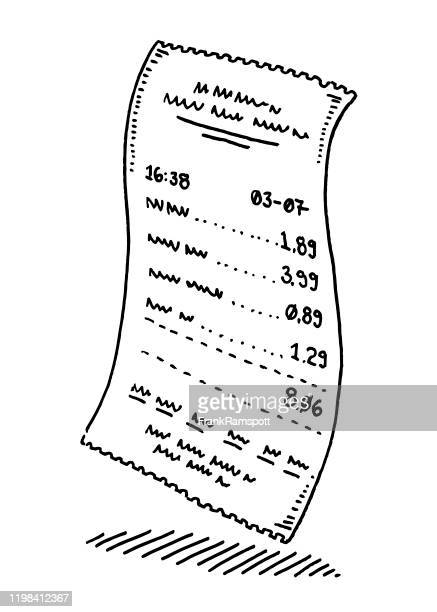 16:38 03-07
1.89
3.99
0.89
1.29
8.06
gettyimages
FrankRamspott
1198412367